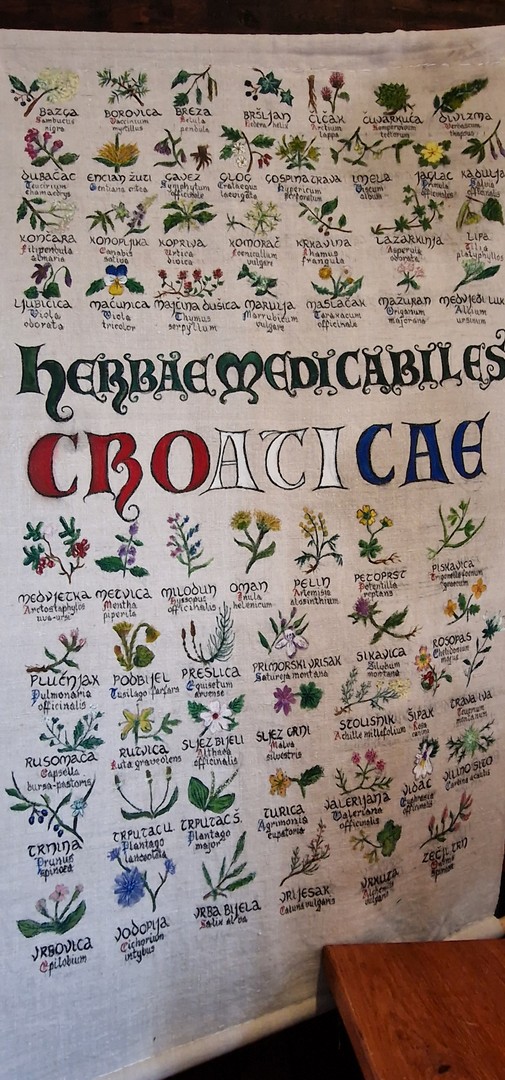 BAZGA
Sambucus
nigra
BOROVICA
Vaccinium
myrtillus
BREZA
Betula
pendula
BRŠLJAN
Hedera helix
ČIČAK
Arctium
lappa
ČUVARKUĆA
Sempervivum
tectorum
DIVIZMA
Verbascum
thapsus
DUBAČAC
Teucrium
chamaedrys
ENCIAN ŽUTI
Gentiana lutea
GAVEZ
Symphytum
officinale
GLOG
Crataegus
laevigata
GOSPINA TRAVA
Hypericum
perforatum
IMELA
Viscum
album
JAGLAC
Primula
officinalis
KADULJA
Salvia
KONČARA
Filipendula
ulmaria
KONOPLJIKA
Canabis
sativa
KOPRIVA
Urtica
dioica
KOMORAČ
Foeniculum
vulgare
KRKAVINA
Rhamus
frangula
LAZARKINJA
Asperula
odorata
LIPA
Tilia
platyphyllos
LJUBICICA
Viola
odorata
MAĆUNICA
Viola
tricolor
MAJČINA DUŠICA
Thymus
serpyllum
MARULJA
Marrubicum
vulgare
MASLAČAK
Taraxacum
officinale
MAŽURAN
Origanum
majorana
MEDVJEĐI LUK
Allium
ursinum
HERBAE MEDICABILES
CROATICAE
MEDVJETKA
Arctostaphylos
uva-ursi
METVICA
Mentha
piperita
MILODUH
Hyssopus
officinalis
OMAN
Inula
helenicum
PELIN
Artemisia
absinthium
PETOPRST
Potentilla
reptans
PISKAVICA
Trigonella foenum
graecum
PLUĆNJAK
Pulmonaria
officinalis
PODBIJEL
Tusilago farfara
PRESLICA
Equisetum
arvense
PRIMORSKI VRISAK
Satureja montana
SIKAVICA
Silubum
montana
ROSOPAS
Chelidonium
majus
RUSOMAČA
Capsella
bursa-pastoris
RUTVICA
Ruta graveolens
SLJEZ BIJELI
Althaea
officinalis
SLJEZ CRNI
Malva
silvestris
STOLISNIK
Achille millefolium
ŠIPAK
Rosa
canina
TRAVA IVA
Teucrium
montanum
TRNINA
Prunus
spinoza
TRPUTAC U.
Plantago
lanceolata
TRPUTAC Š.
Plantago
major
TURICA
Agrimonia
eupatoria
VALERIJANA
Valeriana
officinalis
VIDAC
Euphrasia
officinalis
VILINO SITO
Carlina acaulis
VRBOVICA
Epilobium
VODOPIJA
Cichorium
intybus
VRBA BIJELA
Salix alba
VRIJESAK
Caluna vulgaris
VRKUTA
Alchemilla
vulgaris
ZEČJI TRN
spinosa